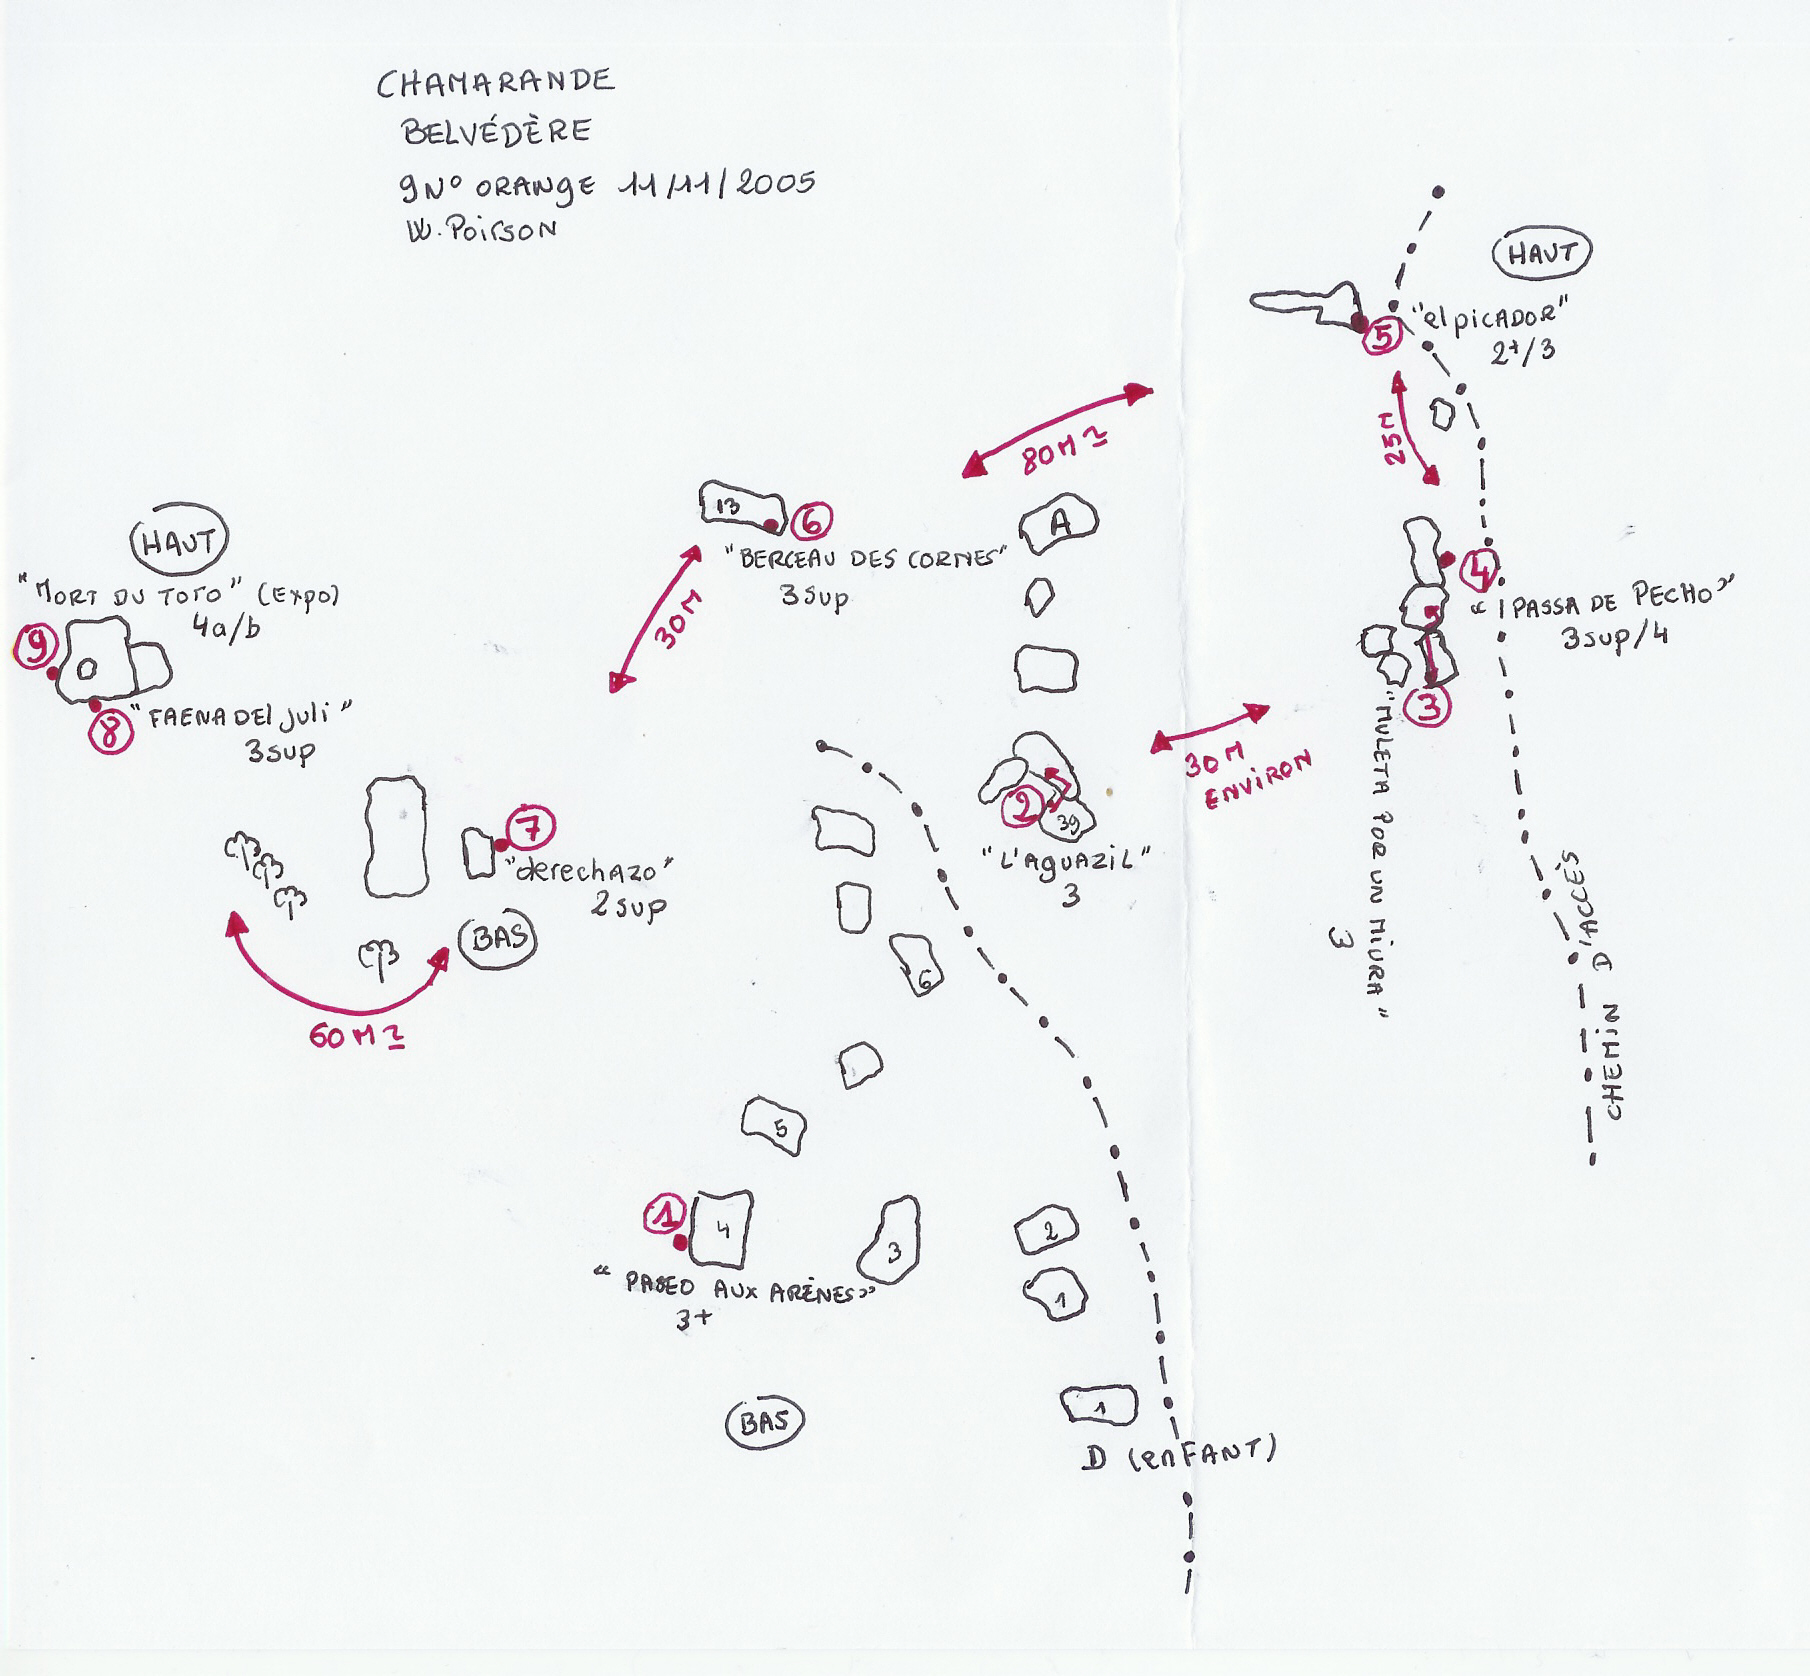 CHAMARANDE
BELVÉDÈRE
9N° ORANGE 11/11/2005
W. Poirson
HAUT
5
"el picador"
2+/3
25M
80M ±
13
6
"BERCEAU DES CORNES"
3Sup
A
HAUT
"MORT DU TOTO" (Expo)
4a/b
9
8
"FAENA DEl juli"
3sup
30M
4
"PASSA DE PECHO"
3sup/4
3
"MULETA POR UN MIURA"
3
30M
ENVIRON
2
39
"L'AGUAZIL"
3
7
"derechazo"
2sup
BAS
60M ±
6
CHEMIN D'ACCÈS
5
1
4
3
2
1
"PASEO AUX ARÈNES"
3+
BAS
1
D (enfANT)